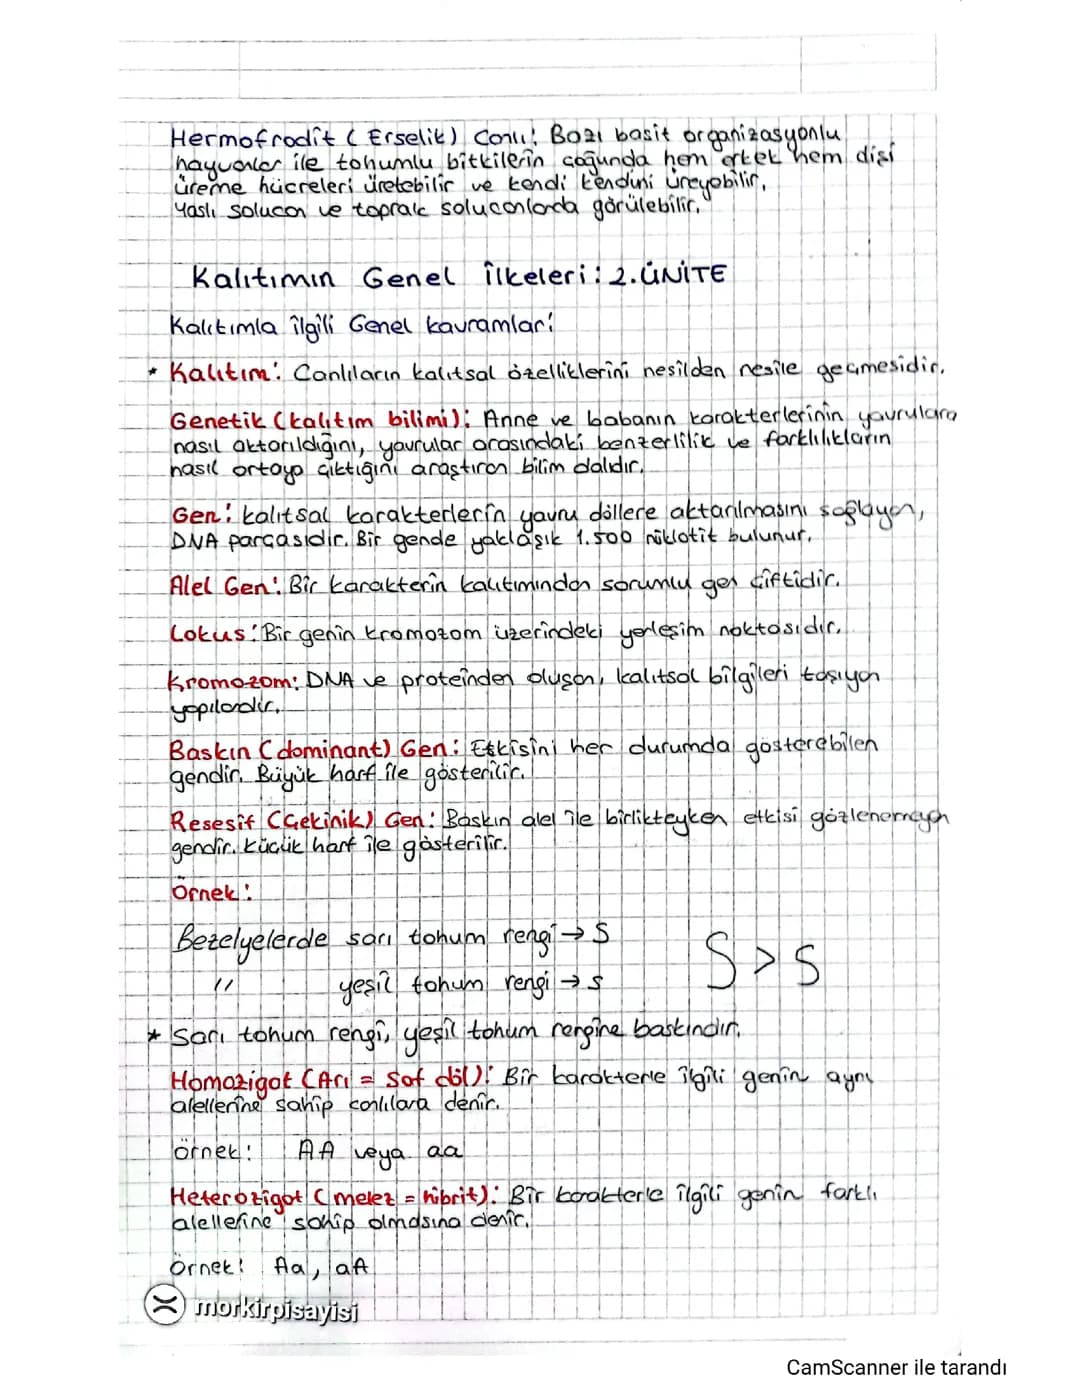 Hermofrodit (Erselik) Canlı: Bazı basit organizasyonlu
hayvanlar ile tohumlu bitkilerin çoğunda hem erkek hem dişi
üreme hücreleri üretebilir ve kendi kendini üreyebilir.
Yaslı solucan ve toprak solucanlarda görülebilir.
Kalıtımın Genel İlkeleri: 2.ÜNİTE
Kalıtımla ilgili Genel kavramlar:
* Kalıtım: Canlıların kalıtsal özelliklerini nesilden nesile geçmesidir.
Genetik (kalıtım bilimi): Anne ve babanın karakterlerinin yavrulara
nasıl aktarıldığını, yavrular arasındaki benzerlilik ve farklılıkların
nasıl ortaya çıktığını araştıran bilim dalıdır.
Gen: kalıtsal karakterlerin yavru döllere aktarılmasını sağlayan,
DNA parçasıdır. Bir gende yaklaşık 1.500 nüklotit bulunur.
Alel Gen: Bir karakterin kalıtımından sorumlu gen çiftidir.
Lokus: Bir genin kromozom üzerindeki yerleşim noktasıdır.
Kromozom: DNA ve proteinden oluşan, kalıtsal bilgileri taşıyan
yapılardır.
Baskın (dominant) Gen: Etkisini her durumda gösterebilen
gendir. Büyük harf ile gösterilir.
Resesif (Çekinik) Gen: Baskın alel ile birlikteyken etkisi gözlenemeyen
gendir. Küçük harf ile gösterilir.
Örnek:
Bezelyelerde sarı tohum rengi → S
" yeşil tohum rengi → s
S > s
* Sarı tohum rengi, yeşil tohum rengine baskındır.
Homozigot (Arı = Saf döl): Bir karakterle ilgili genin aynı
alellerine sahip canlılara denir.
örnek: AA veya aa
Heterozigot (melez = hibrit): Bir karakterle ilgili genin farklı
alellerine sahip olmasına denir.
Örnek: Aa, aA
morkirpisayisi
CamScanner ile tarandı